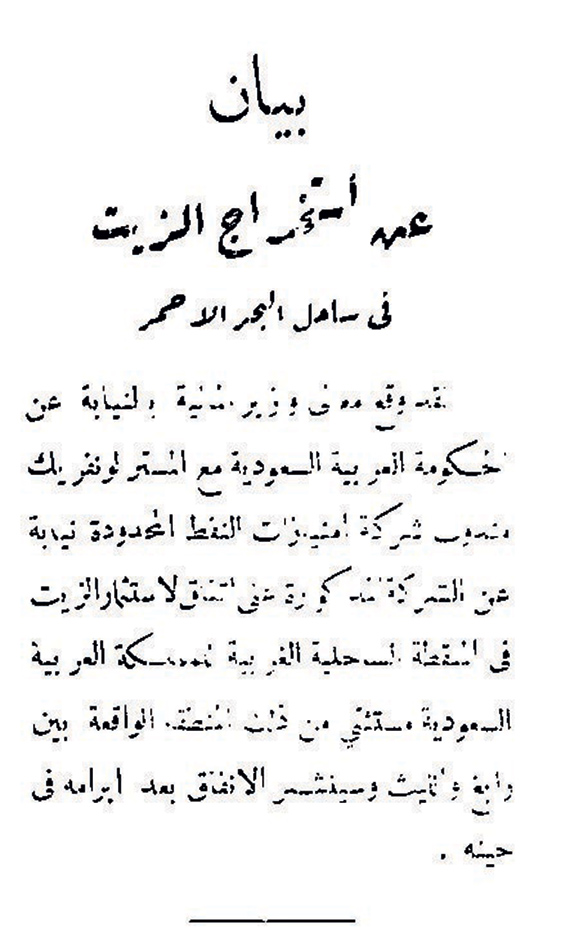 بيان
عن أستخراج الزيت
في ساحل البحر الاحمر
لقد وقع معالي وزير المالية بالنيابة عن
الحكومة العربية السعودية مع المستر لونغريك
مندوب شركة امتيازات النفط المحدودة نيابة
عن الشركة المذكورة على اتفاق لاستثمار الزيت
في المنطقة الساحلية الغربية للمملكة العربية
السعودية مستثنى من ذلك المنطقة الواقعة بين
رابغ والليث وسينشر الاتفاق بعد ابرامه في
حينه .